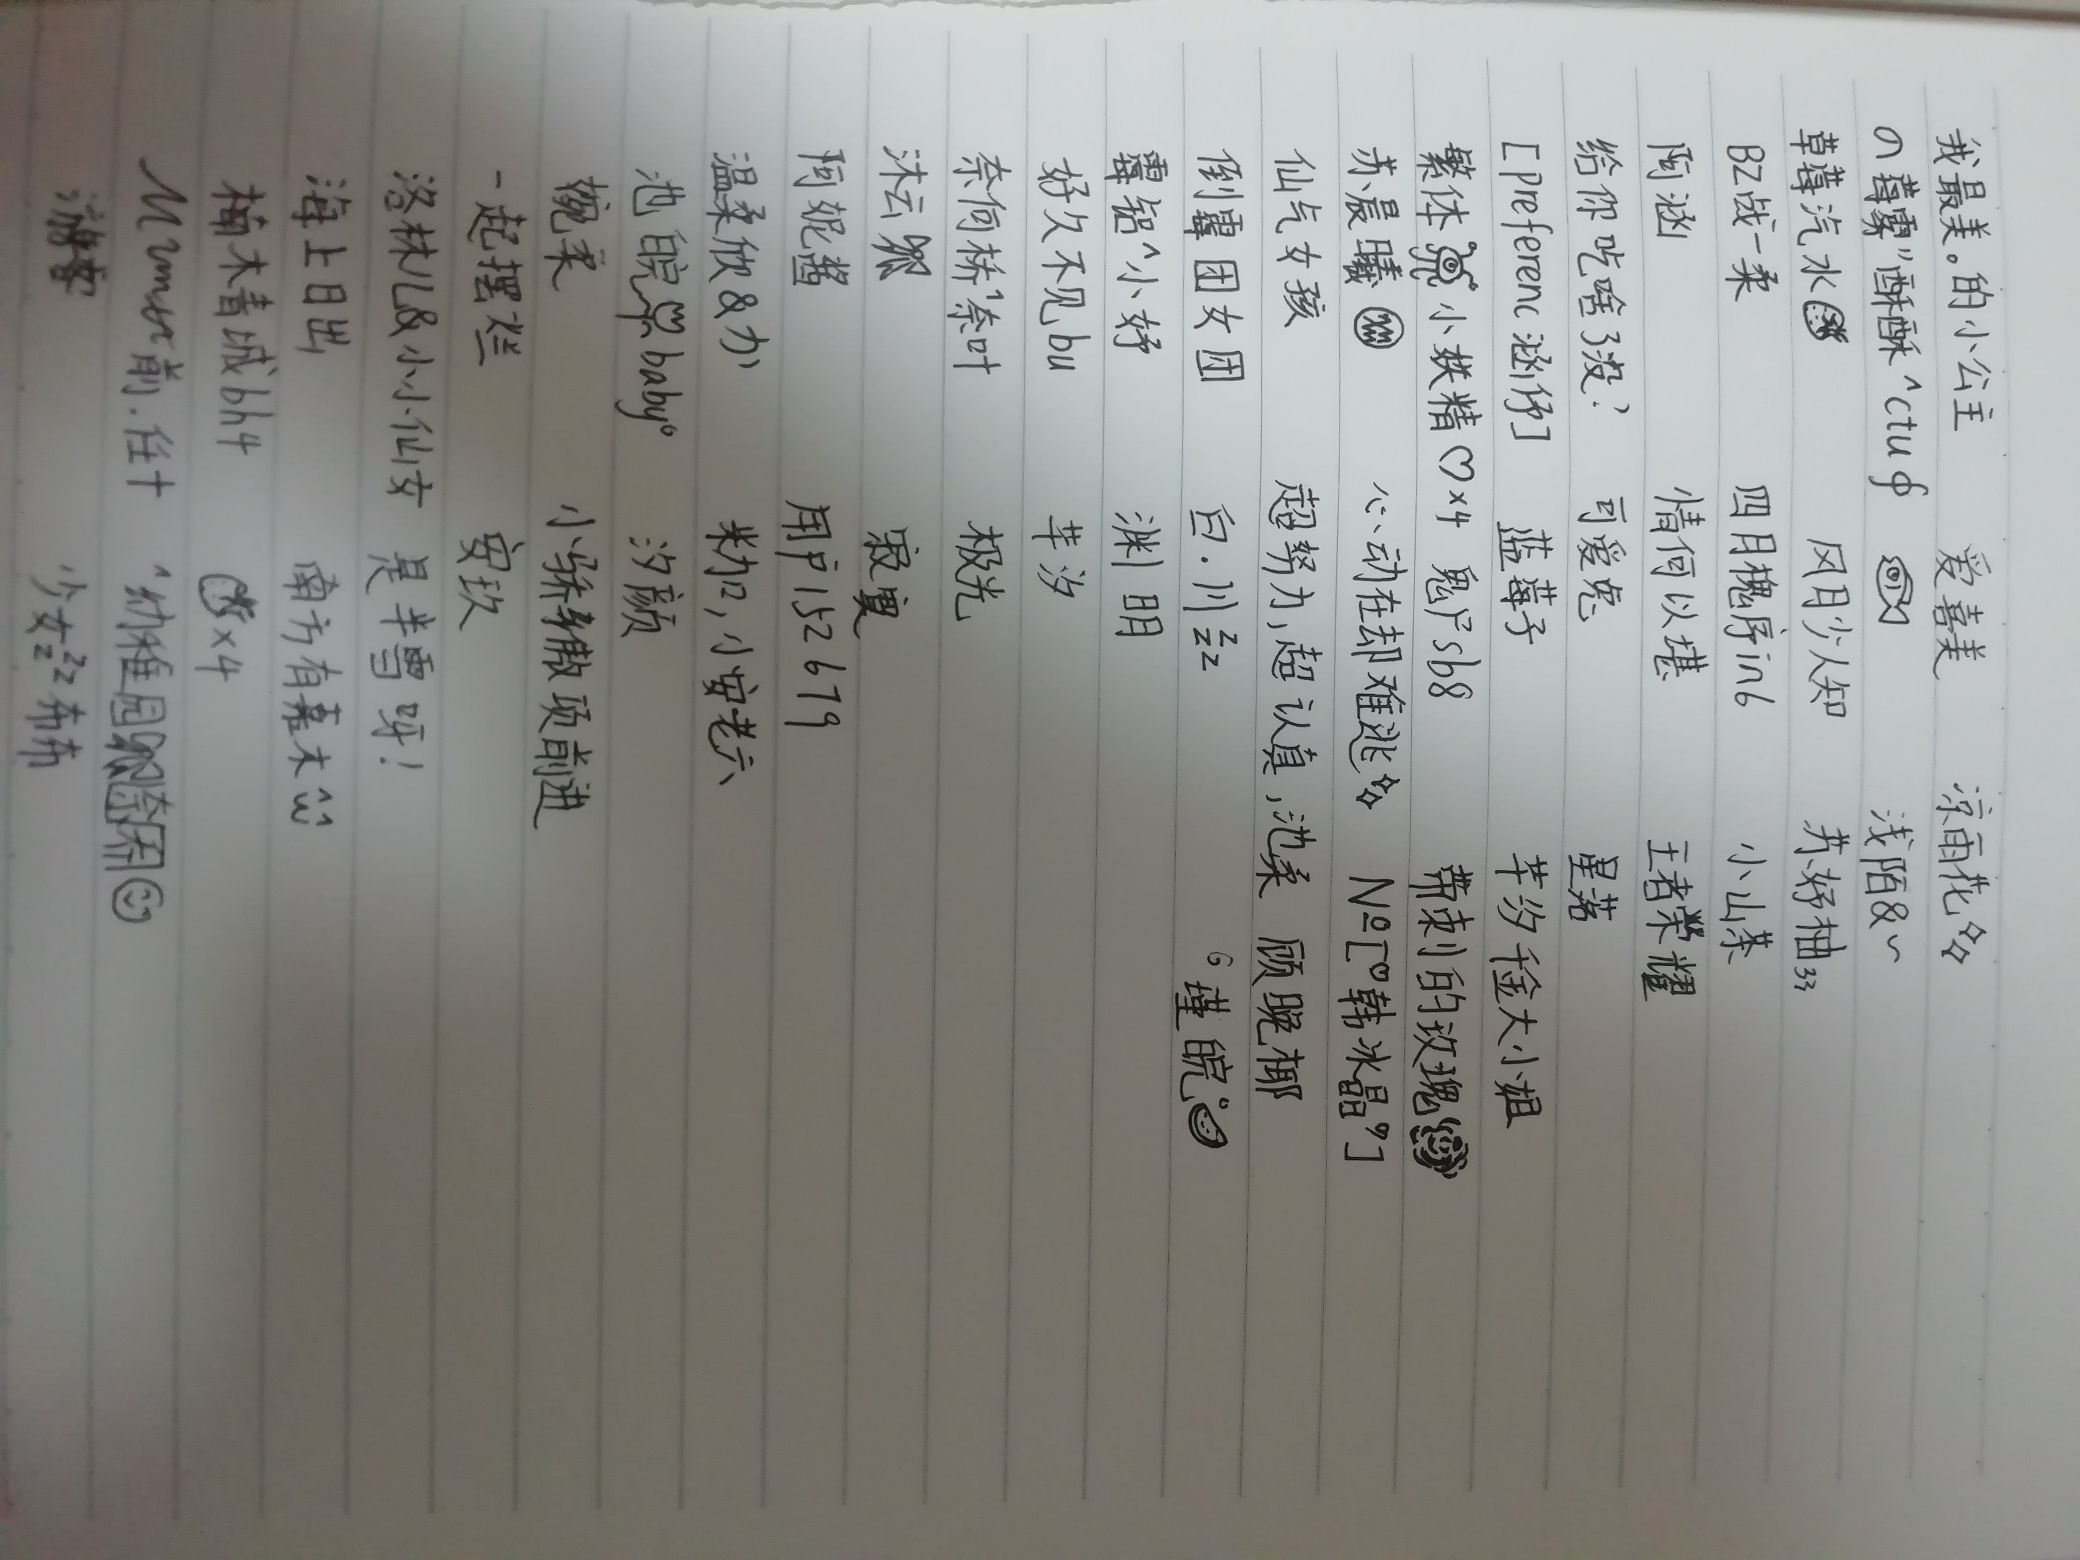 我最美。的小公主 爱喜美 凉雨花
の莓霧"酥酥^ctuф 浅陌&~
草莓汽水 冈月少人知 苏妤柚333
BZ战一柔 四月槐序in6 小山茶
阿涵 情何以堪 王者荣耀
给你吃啥了没? 可爱兔 星落
[preferenc涵仔] 蓝莓子 芊汐千金大小姐
繁体 小妖精♡x4 鬼尸sb8 带刺的玫瑰
苏晨曦 心动在劫难逃 No[°韩冰晶°]
仙气女孩 超努力,超认真,池柔 顾晚椰
倒霉团女团 白·川zzz 6瑾皖°
霉铝^小妤 渊明
好久不见bu 芊汐
奈何桥^奈叶 极光
沐云 寂寞
阿妮酱 用户152679
温柔欣&力 粒口,小安老六
池皖♡baby° 汐颜
婉柔 小骄傲项前进
一起摆烂 安玖
洛林儿&小小仙女 是芊雪呀!
海上日出 南方有嘉木
楠木青城bh4 x4
前.任十 ^幼稚园
少女zzz